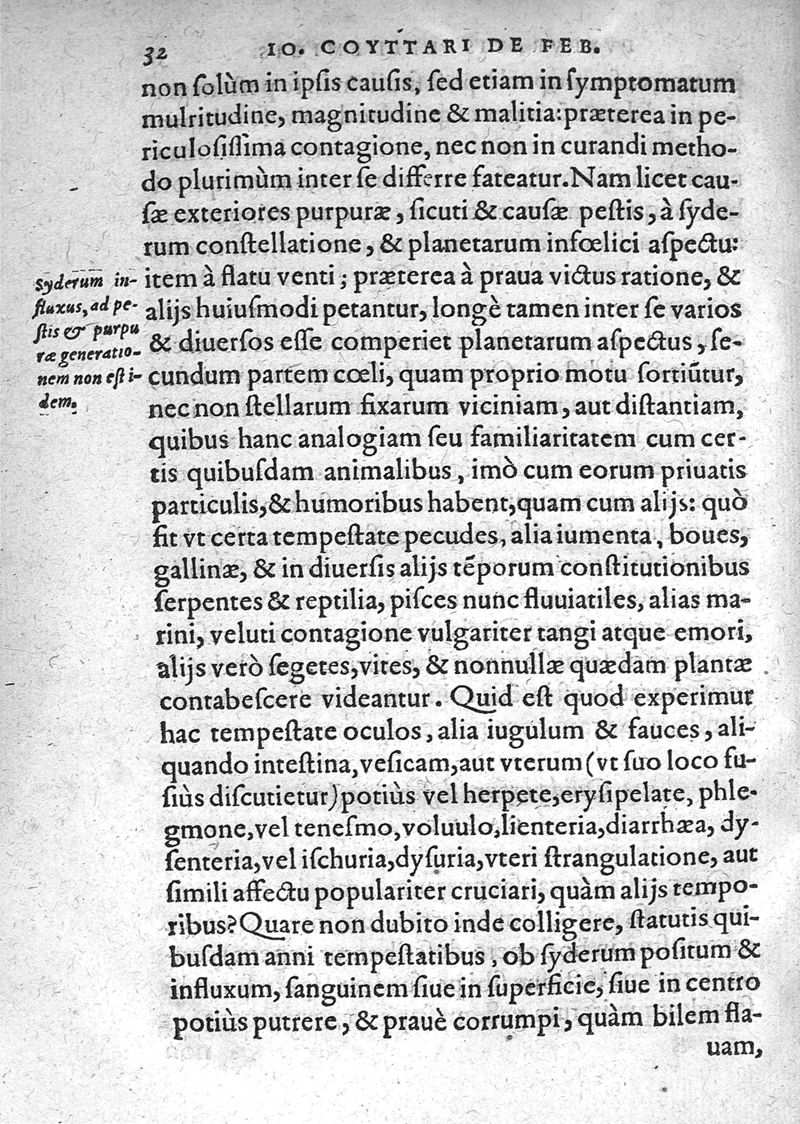 32 IO. COYTTARI DE FEB.
non ſolùm in ipſis cauſis, ſed etiam in ſymptomatum
mulritudine, magnitudine & malitia: præterea in pe-
riculoſiſſima contagione, nec non in curandi metho-
do plurimùm inter ſe differre fateatur. Nam licet cau-
ſæ exteriores purpuræ, ſicuti & cauſæ peſtis, à ſyde-
rum conſtellatione, & planetarum infœlici aſpectu:
item à flatu venti; præterea à praua victus ratione, &
alijs huiuſmodi petantur, longè tamen inter ſe varios
& diuerſos eſſe comperiet planetarum aſpectus, ſe-
cundum partem cœli, quam proprio motu ſortiũtur,
nec non ſtellarum fixarum viciniam, aut diſtantiam,
quibus hanc analogiam ſeu familiaritatem cum cer-
tis quibuſdam animalibus, imò cum eorum priuatis
particulis, & humoribus habent, quam cum alijs: quò
fit vt certa tempeſtate pecudes, alia iumenta, boues,
gallinæ, & in diuerſis alijs tẽporum conſtitutionibus
ſerpentes & reptilia, piſces nunc fluuiatiles, alias ma-
rini, veluti contagione vulgariter tangi atque emori,
alijs verò ſegetes, vites, & nonnullæ quædam plantæ
contabeſcere videantur. Quid eſt quod experimur
hac tempeſtate oculos, alia iugulum & fauces, ali-
quando inteſtina, veſicam, aut vterum (vt ſuo loco fu-
ſiùs diſcutietur) potiùs vel herpete, eryſipelate, phle-
gmone, vel teneſmo, voluulo, lienteria, diarrhæa, dy-
ſenteria, vel iſchuria, dyſuria, vteri ſtrangulatione, aut
ſimili affectu populariter cruciari, quàm alijs tempo-
ribus? Quare non dubito inde colligere, ſtatutis qui-
buſdam anni tempeſtatibus, ob ſyderum poſitum &
influxum, ſanguinem ſiue in ſuperficie, ſiue in centro
potiùs putrere, & prauè corrumpi, quàm bilem fla-
uam,
Syderum in-
fluxus, ad pe-
ſtis & purpu
ræ generatio-
nem non eſt i-
dem.